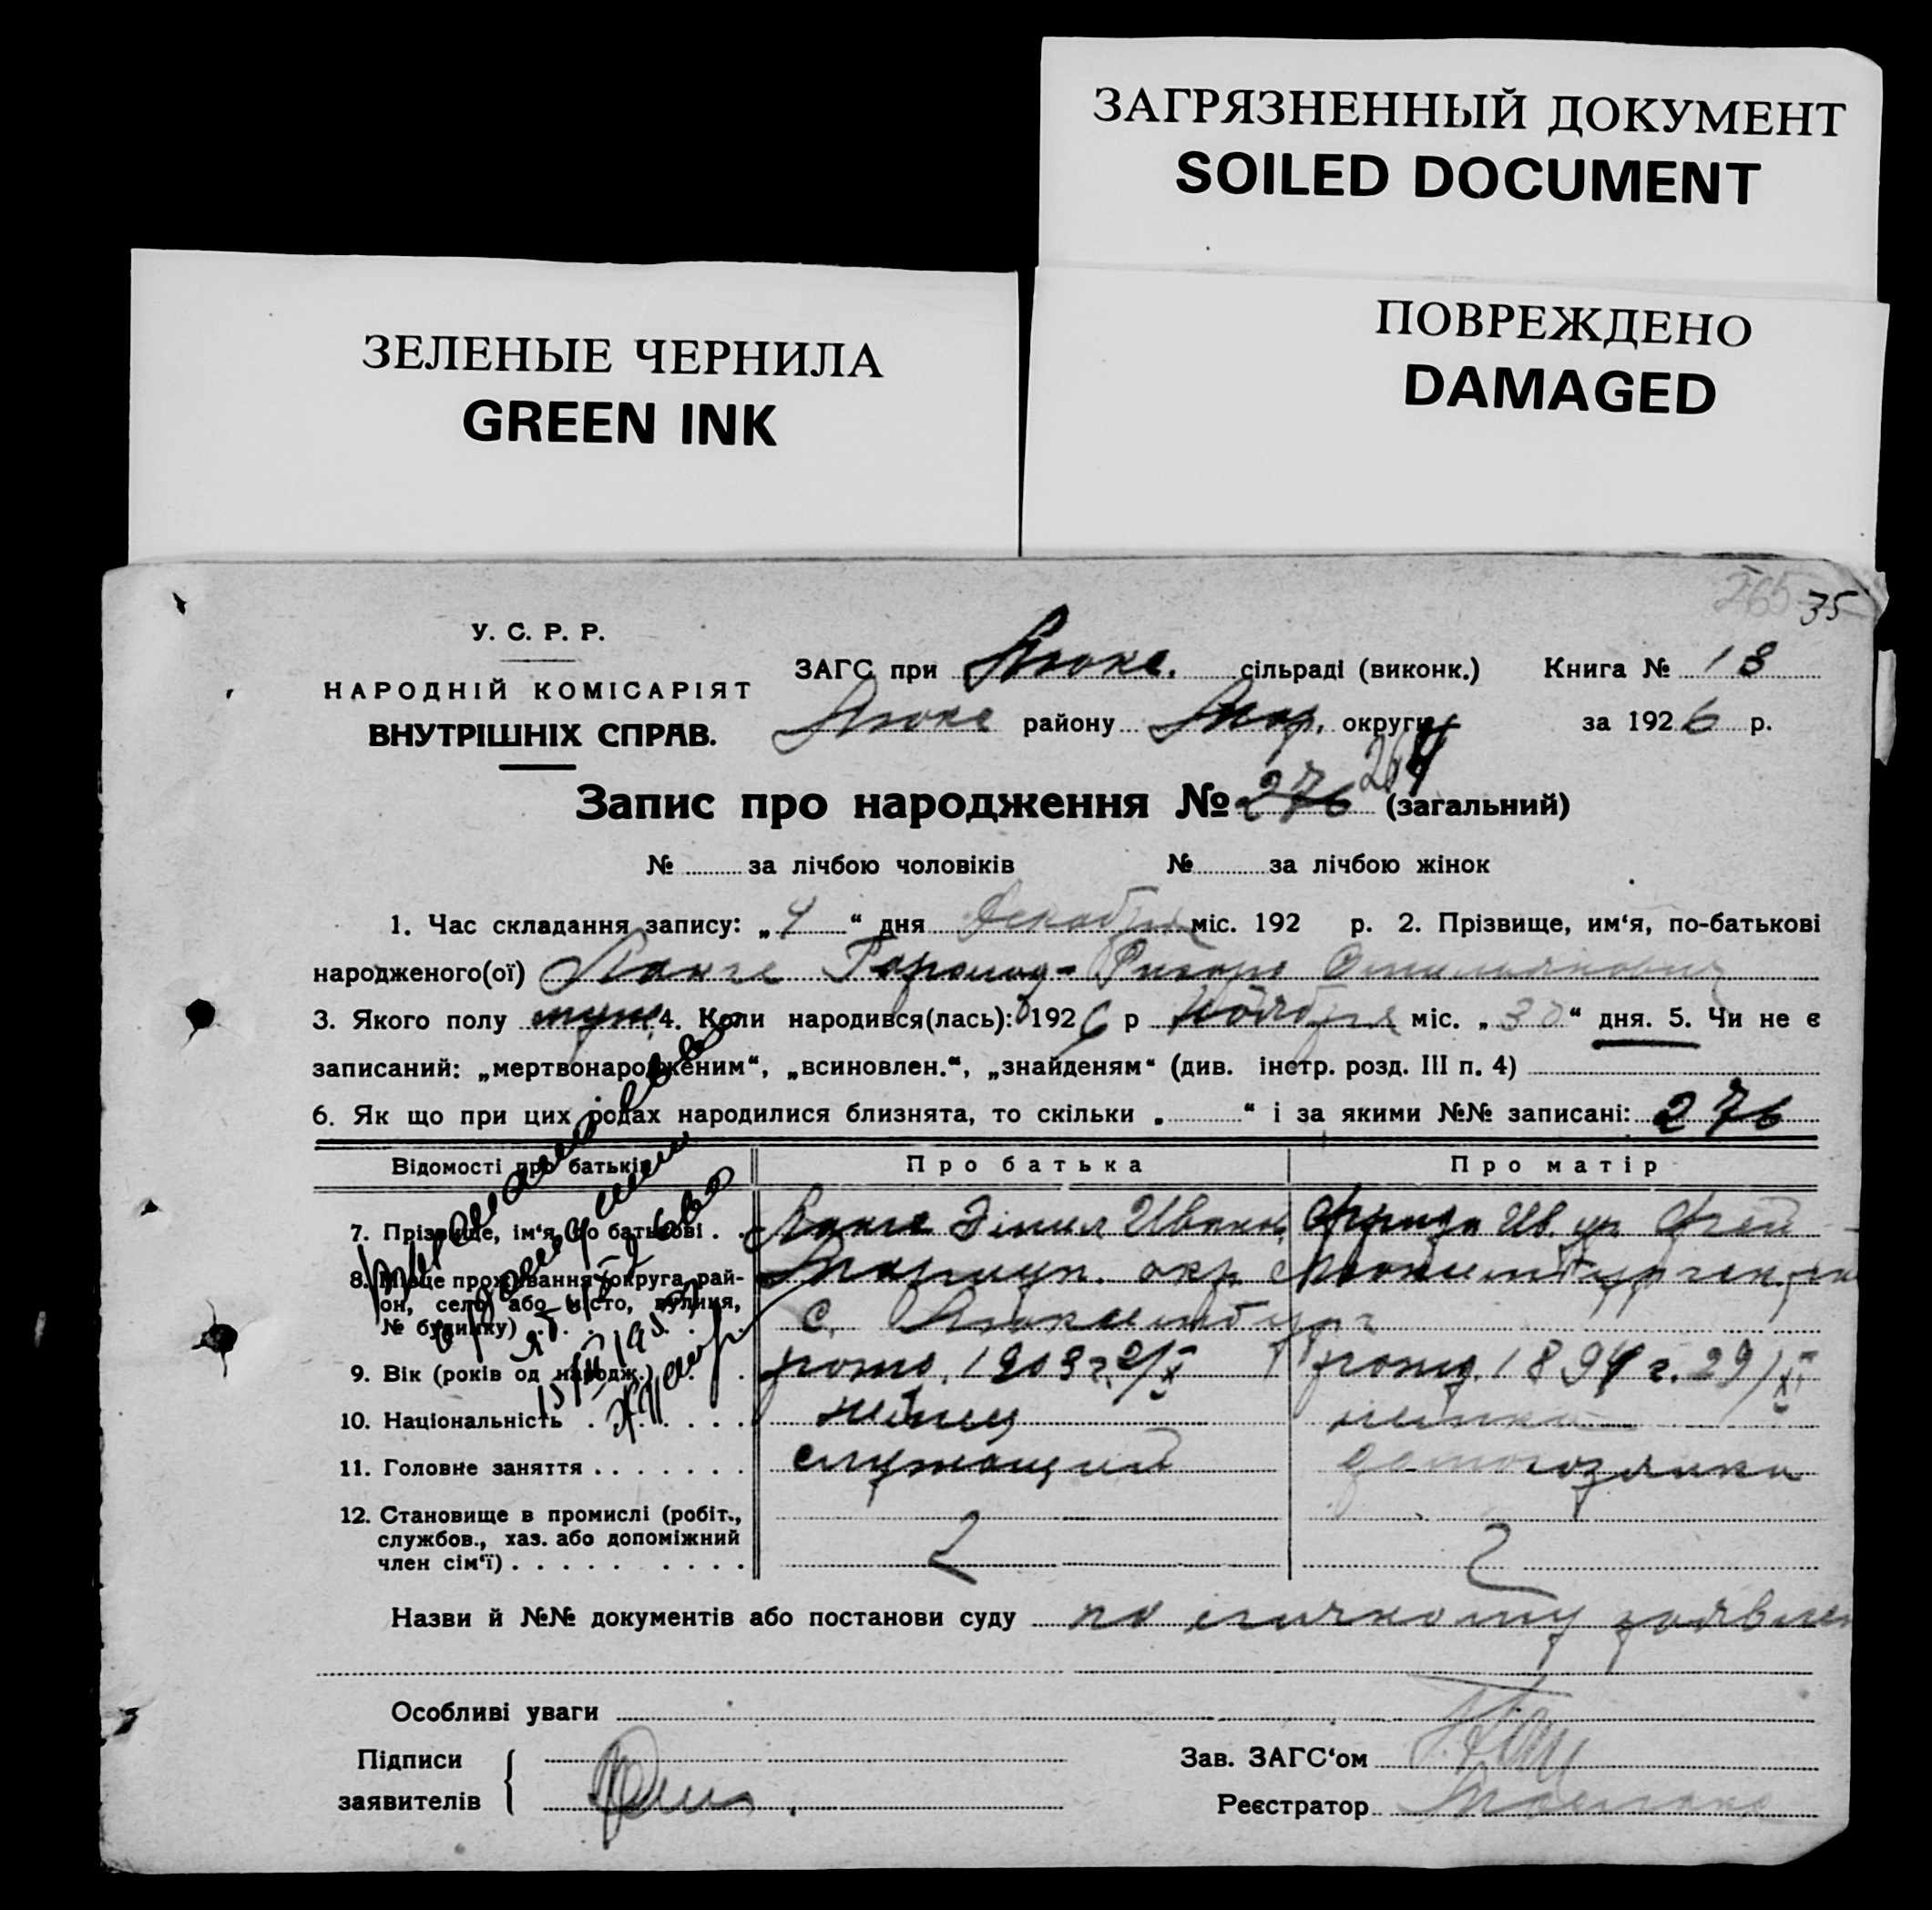 ЗАГРЯЗНЕННЫЙ ДОКУМЕНТ
SOILED DOCUMENT
ПОВРЕЖДЕНО
DAMAGED
ЗЕЛЕНЫЕ ЧЕРНИЛА
GREEN INK
265 35
У. С. Р. Р.
НАРОДНІЙ КОМІСАРІЯТ
ВНУТРІШНІХ СПРАВ.
ЗАГС при Люкс. сільраді (виконк.) Книга № 18
Люкс району Мар. округи за 1926 р.
Запис про народження № 276 264 (загальний)
№ за лічбою чоловіків № за лічбою жінок
1. Час складання запису: „4“ дня Декабря міс. 192 р. 2. Прізвище, им‘я, по-батькові
народженого(ої) Ланге
3. Якого полу муж. 4. Коли народився(лась): 1926 р Ноября міс. „30“ дня. 5. Чи не є
записаний: „мертвонародженим“, „всиновлен.“, „знайденям“ (див. інстр. розд. III п. 4)
6. Як що при цих родах народилися близнята, то скільки „ “ і за якими №№ записані: 276
Відомості про батьків Про батька Про матір
7. Прізвище, ім‘я, по батькові . . Ланге Иван. Фрида Ив. ур.
8. Місце проживання (округа, рай-
он, село, або місто, вулиця,
№ будинку) Мариуп. окр. Люксембург
с. Люксембург
9. Вік (років од народж.) рожд. 1903 г. рожд. 1894 г. 29/XI
10. Національність немец немка
11. Головне заняття служащий домохозяйка
12. Становище в промислі (робіт.,
службов., хаз. або допоміжний
член сім‘ї) 2 2
Назви й №№ документів або постанови суду по личному заявлен
Особливі уваги
Підписи
заявителів
Зав. ЗАГС‘ом
Реєстратор